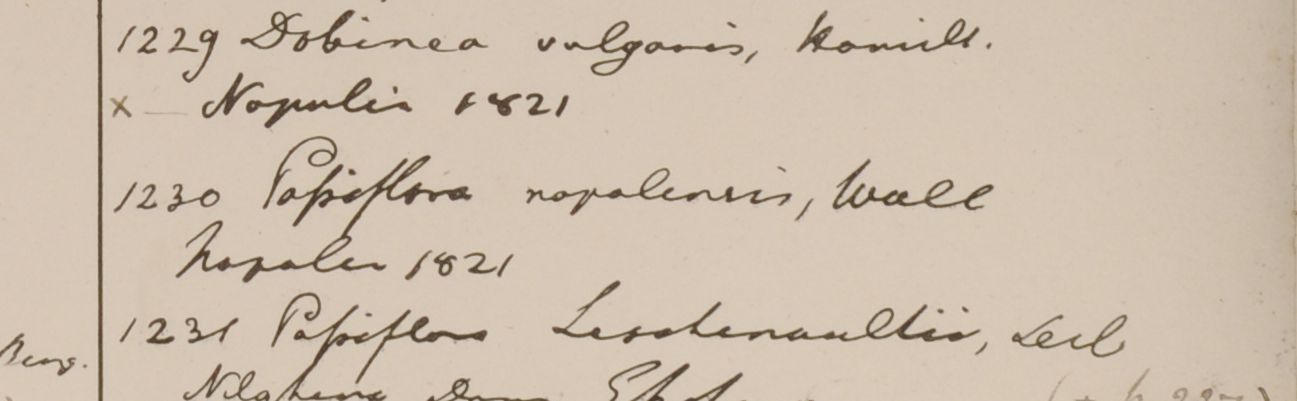 1229 Dobinea vulgaris, Hamilt.
x — Napulia 1821
1230 Passiflora napalensis, Wall
Napalia 1821
1231 Passiflora Leschenaultii,
Beng.